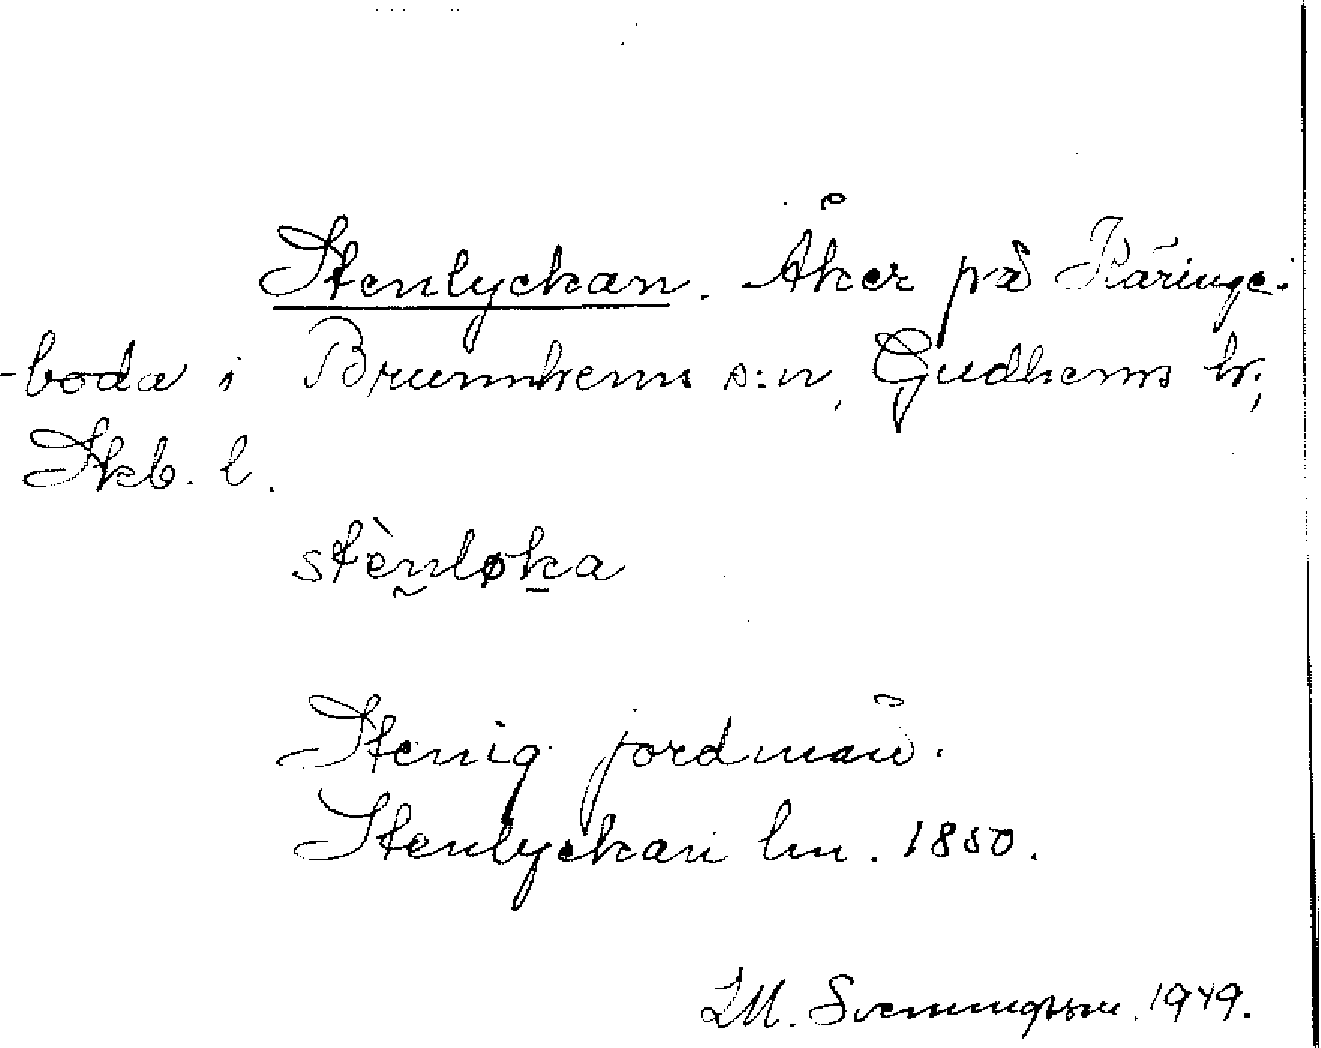 Stenlyckan. Åker på Käringe-
-boda i Brunnhems s:n, Gudhems hr;
Skb. l.
stènløka
Stenig jordmån.
Stenlyckan lm. 1850.
LM. Svenningsson. 1949.